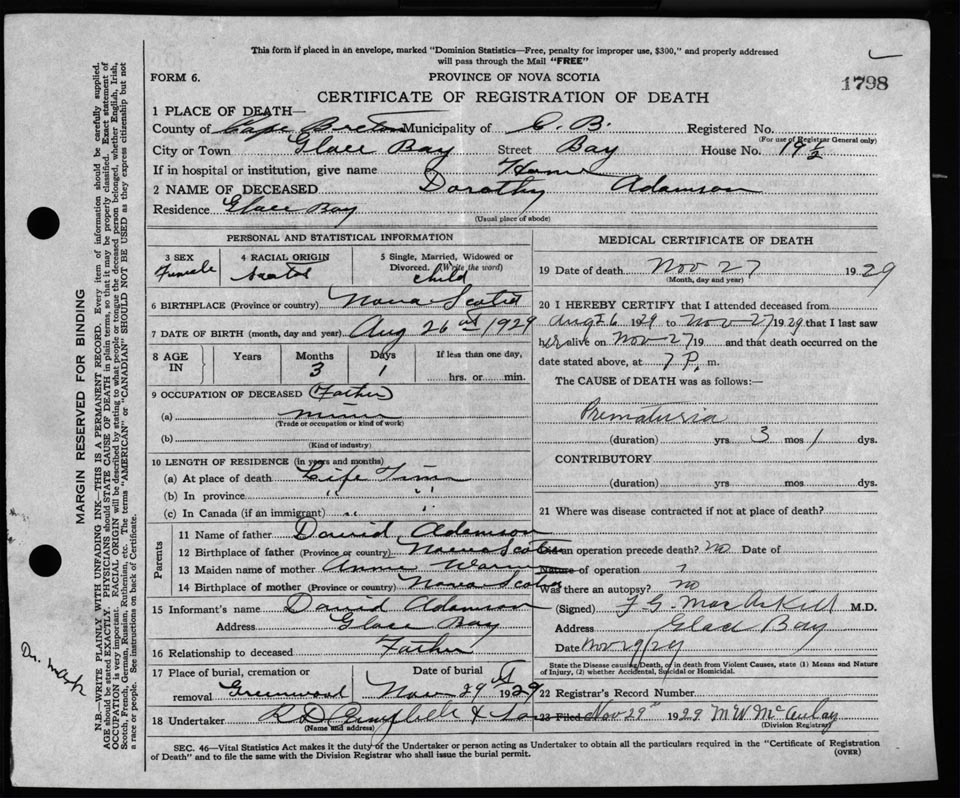 This form if placed in an envelope, marked "Dominion Statistics—Free, penalty for improper use, $300," and properly addressed
will pass through the Mail "FREE"
FORM 6.
PROVINCE OF NOVA SCOTIA
1798
CERTIFICATE OF REGISTRATION OF DEATH
1 PLACE OF DEATH—
County of Cape Breton Municipality of C. B. Registered No.
(For use of Registrar General only)
City or Town Glace Bay Street Bay House No. 19½
If in hospital or institution, give name Home
2 NAME OF DECEASED Dorothy Adamson
Residence Glace Bay
(Usual place of abode)
PERSONAL AND STATISTICAL INFORMATION
3 SEX
Female
4 RACIAL ORIGIN
5 Single, Married, Widowed or
Divorced. (Write the word)
Child
6 BIRTHPLACE (Province or country) Nova Scotia
7 DATE OF BIRTH (month, day and year) Aug 26 1929
8 AGE IN
Years
Months
3
Days
1
If less than one day,
hrs. or min.
9 OCCUPATION OF DECEASED (Father)
(a) miner
(Trade or occupation or kind of work)
(b)
(Kind of industry)
10 LENGTH OF RESIDENCE (in years and months)
(a) At place of death Life Time
(b) In province " "
(c) In Canada (if an immigrant) " "
Parents
11 Name of father David Adamson
12 Birthplace of father (Province or country) Nova Scotia
13 Maiden name of mother Annie
14 Birthplace of mother (Province or country) Nova Scotia
15 Informant's name David Adamson
Address Glace Bay
16 Relationship to deceased Father
17 Place of burial, cremation or
removal Greenwood
Date of burial
Nov 29 1929
18 Undertaker R D Campbell & Son
(Name and address)
MEDICAL CERTIFICATE OF DEATH
19 Date of death Nov 27 1929
(Month, day and year)
20 I HEREBY CERTIFY that I attended deceased from
Aug 26 1929 to Nov 27 1929 that I last saw
her alive on Nov 27 19 and that death occurred on the
date stated above, at 7 P. m.
The CAUSE of DEATH was as follows:—
Prematuria
(duration) yrs. 3 mos 1 dys.
CONTRIBUTORY
(duration) yrs. mos. dys.
21 Where was disease contracted if not at place of death?
an operation precede death? no Date of
Nature of operation
Was there an autopsy? no
(Signed) F G MacAskill M.D.
Address Glace Bay
Date Nov 29/29
State the Disease causing Death, or in death from Violent Causes, state (1) Means and Nature
of Injury, (2) whether Accidental, Suicidal or Homicidal.
22 Registrar's Record Number
23 Filed Nov 29 1929 M W McAulay
(Division Registrar)
SEC. 46—Vital Statistics Act makes it the duty of the Undertaker or person acting as Undertaker to obtain all the particulars required in the "Certificate of Registration
of Death" and to file the same with the Division Registrar who shall issue the burial permit.
(OVER)
MARGIN RESERVED FOR BINDING
N.B.—WRITE PLAINLY WITH UNFADING INK—THIS IS A PERMANENT RECORD. Every item of information should be carefully supplied.
AGE should be stated EXACTLY. PHYSICIANS should STATE CAUSE OF DEATH in plain terms, so that it may be properly classified. Exact statement of
OCCUPATION is very important. RACIAL ORIGIN will be described by stating to what people or tongue the deceased person belonged, whether English, Irish,
Scotch, French, German, Russian, Ruthenian, etc. The terms "AMERICAN" or "CANADIAN" SHOULD NOT BE USED as they express citizenship but not
a race or people. See instructions on back of Certificate.